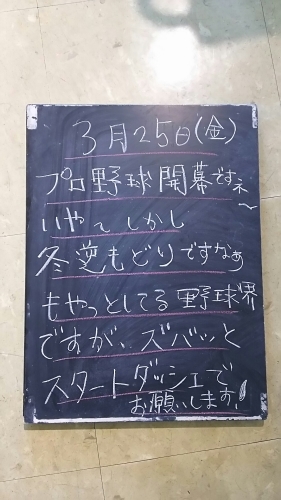 3月25日(金)
プロ野球開幕ですネ～
いや～しかし
冬逆もどりですなぁ
もやっとしてる野球界
ですが、ズバッと
スタートダッシュで
お願いします!